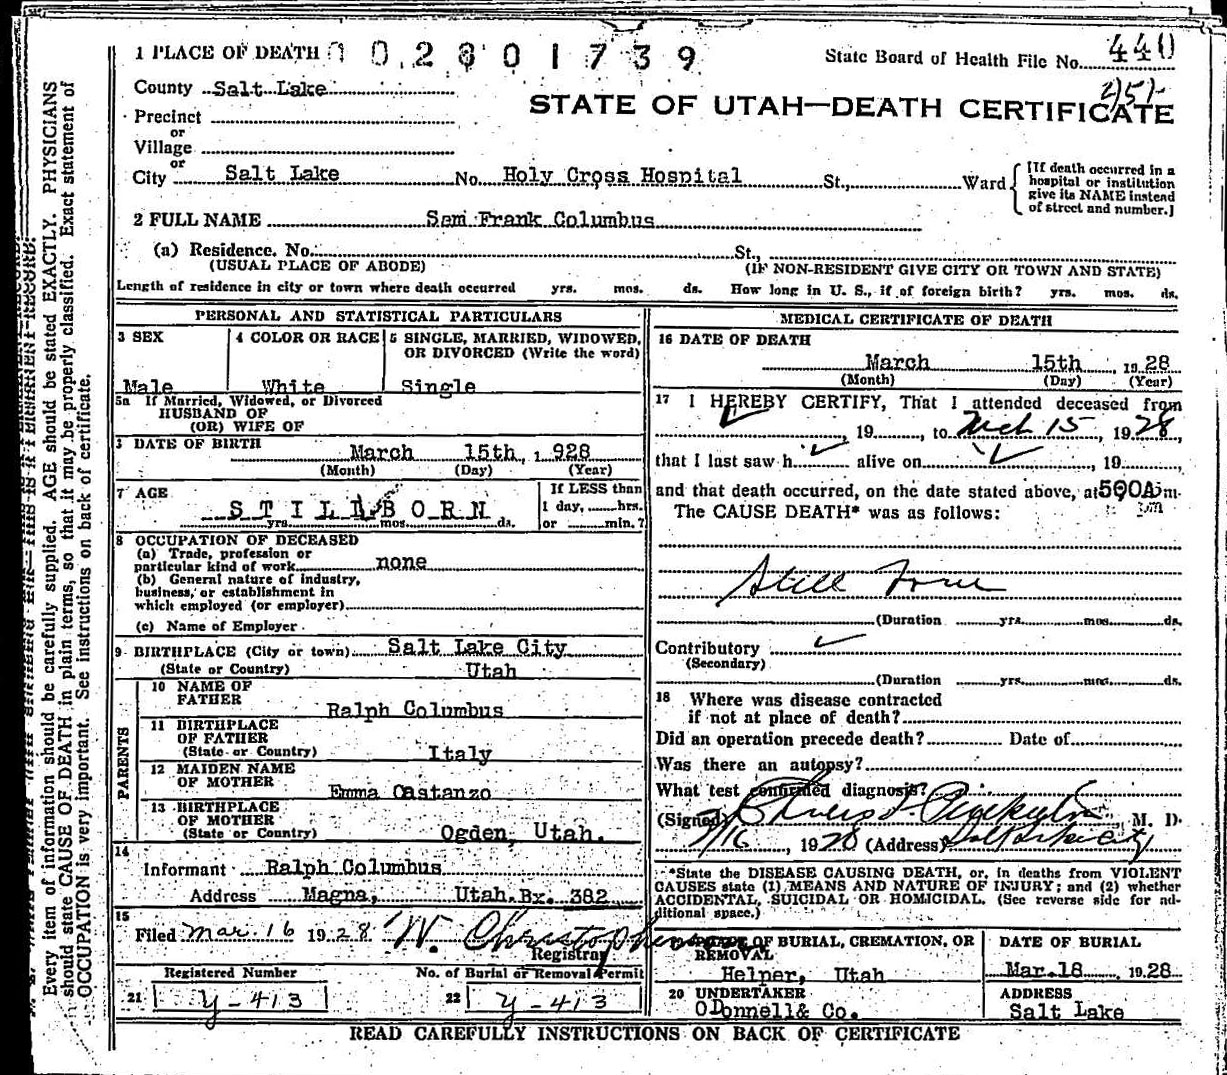 1 PLACE OF DEATH 0 0 2 8 0 1 7 3 9 State Board of Health File No. 440
County Salt Lake
STATE OF UTAH—DEATH CERTIFICATE
Precinct
or
Village
or
City Salt Lake No. Holy Cross Hospital St., Ward
[If death occurred in a
hospital or institution
give its NAME instead
of street and number.]
2 FULL NAME Sami Frank Columbus
(a) Residence. No. St.,
(USUAL PLACE OF ABODE) (IF NON-RESIDENT GIVE CITY OR TOWN AND STATE)
Length of residence in city or town where death occurred yrs. mos. ds. How long in U. S., if of foreign birth? yrs. mos. ds.
PERSONAL AND STATISTICAL PARTICULARS
3 SEX
Male
4 COLOR OR RACE
White
5 SINGLE, MARRIED, WIDOWED,
OR DIVORCED (Write the word)
Single
5a If Married, Widowed, or Divorced
HUSBAND OF
(OR) WIFE OF
DATE OF BIRTH
March 15th, 1928
(Month) (Day) (Year)
7 AGE
S T I L L B O R N
yrs. mos. ds.
If LESS than
1 day, hrs.
or min.?
8 OCCUPATION OF DECEASED
(a) Trade, profession or
particular kind of work none
(b) General nature of industry,
business, or establishment in
which employed (or employer)
(c) Name of Employer
9 BIRTHPLACE (City or town) Salt Lake City
(State or Country) Utah
PARENTS
10 NAME OF
FATHER Ralph Columbus
11 BIRTHPLACE
OF FATHER
(State or Country) Italy
12 MAIDEN NAME
OF MOTHER Emma Castanzo
13 BIRTHPLACE
OF MOTHER
(State or Country) Ogden, Utah.
14
Informant Ralph Columbus
Address Magna, Utah. Bx. 382
15
Filed Mar. 16 1928 W. Christopherson
Registrar
Registered Number
21 Y-413
No. of Burial or Removal Permit
22 Y-413
MEDICAL CERTIFICATE OF DEATH
16 DATE OF DEATH
March 15th, 1928
(Month) (Day) (Year)
17 I HEREBY CERTIFY, That I attended deceased from
, 19 , to Mch 15, 1928,
that I last saw h alive on , 19 ,
and that death occurred, on the date stated above, at 500A m.
The CAUSE DEATH* was as follows:
Still
(Duration yrs. mos. ds.
Contributory
(Secondary)
(Duration yrs. mos. ds.
18 Where was disease contracted
if not at place of death?
Did an operation precede death? Date of
Was there an autopsy?
What test confirmed diagnosis?
(Signed) , M. D.
3/16, 1928 (Address) Salt Lake City
*State the DISEASE CAUSING DEATH, or, in deaths from VIOLENT
CAUSES state (1) MEANS AND NATURE OF INJURY; and (2) whether
ACCIDENTAL, SUICIDAL OR HOMICIDAL. (See reverse side for ad-
ditional space.)
OF BURIAL, CREMATION, OR
REMOVAL
Helper, Utah
DATE OF BURIAL
Mar. 18, 1928
20 UNDERTAKER
ODonnell & Co.
ADDRESS
Salt Lake
READ CAREFULLY INSTRUCTIONS ON BACK OF CERTIFICATE
Every item of information should be carefully supplied. AGE should be stated EXACTLY. PHYSICIANS
should state CAUSE OF DEATH in plain terms, so that it may be properly classified. Exact statement of
OCCUPATION is very important. See instructions on back of certificate.